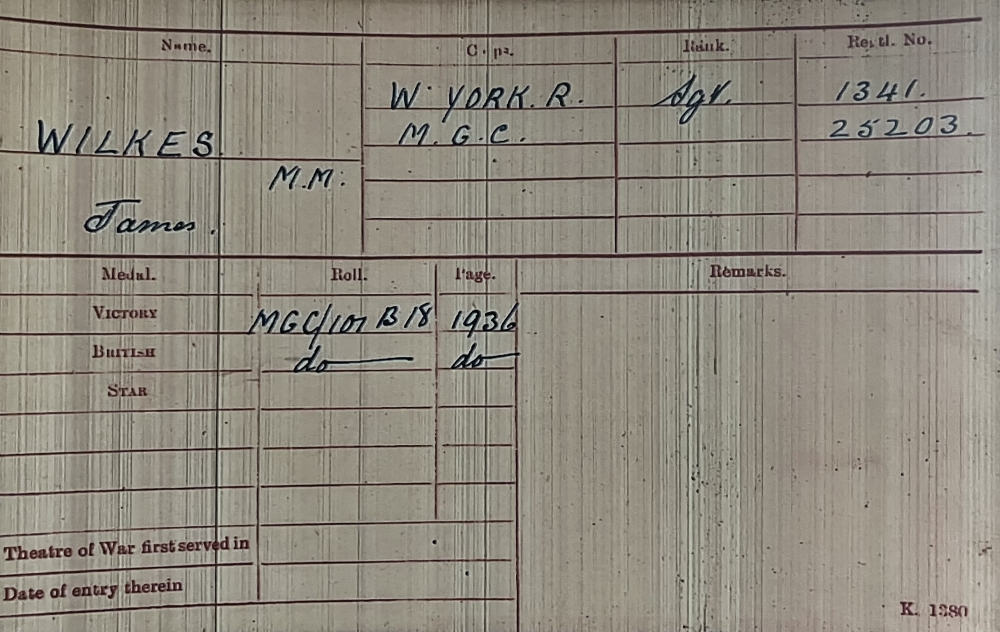 Name. Corps. Rank. Regtl. No.
W. YORK. R. Sgt. 1341.
WILKES M.G.C. 25203.
M.M.
James.
Medal. Roll. Page. Remarks.
VICTORY MGC/101 B18 1936
BRITISH do do
STAR
Theatre of War first served in
Date of entry therein
K. 1380